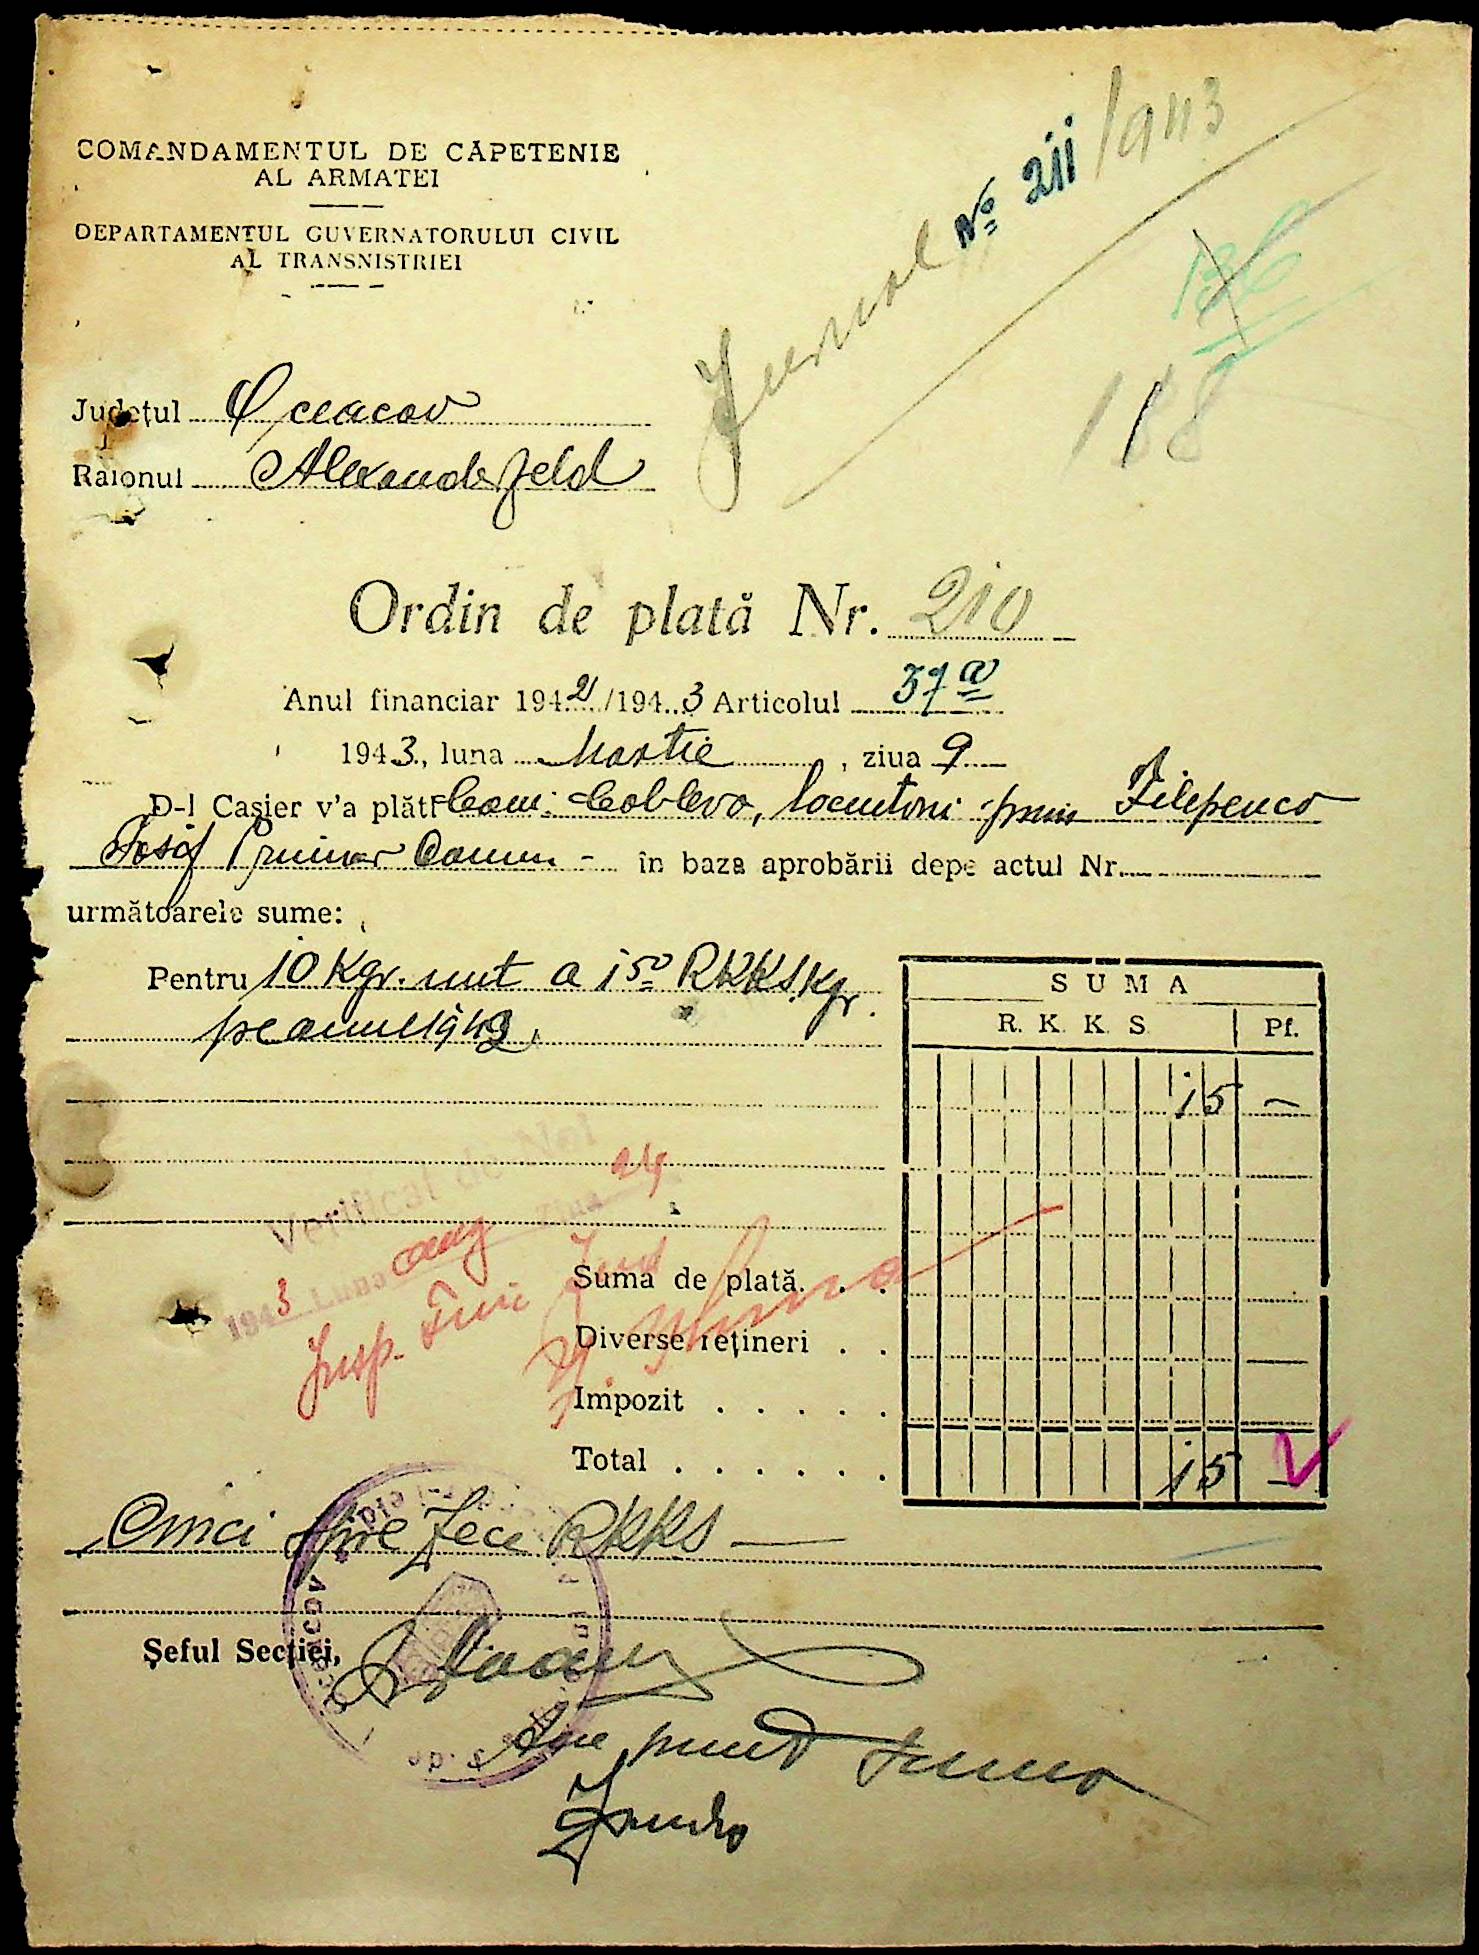 COMANDAMENTUL DE CAPETENIE
AL ARMATEI
DEPARTAMENTUL GUVERNATORULUI CIVIL
AL TRANSNISTRIEI
Jurnal No 211/943
188
Județul Oceacov
Raionul Alexanderfeld
Ordin de plată Nr. 210
Anul financiar 1942/1943 Articolul 37 a
1943, luna Martie, ziua 9
D-l Casier v'a plăti Com. Coblevo, locuitorii prin Filipenco
Iosif Primar Comun - în baza aprobării depe actul Nr.
următoarele sume:
Pentru 10 Kgr. unt a 1 50 RKKS Kgr.
pe anul 1942.
SUMA
R. K. K. S. Pf.
15 —
Verificat de Noi
1943 Luna aug Ziua 24
Insp. Fin
Suma de plată. . .
Diverse rețineri . . —
Impozit . . . . .
Total . . . . . . 15 —
Cinci spre zece RKKS —
Șeful Secției,